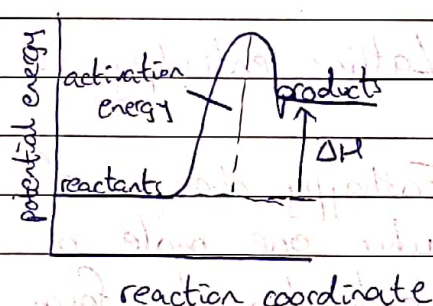 potential energy
activation
energy
products
ΔH
reactants
reaction coordinate